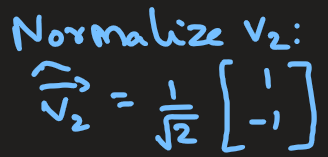 Normalize v₂:
$\hat{\vec{v}}_2 = \frac{1}{\sqrt{2}} \begin{bmatrix} 1 \\ -1 \end{bmatrix}$